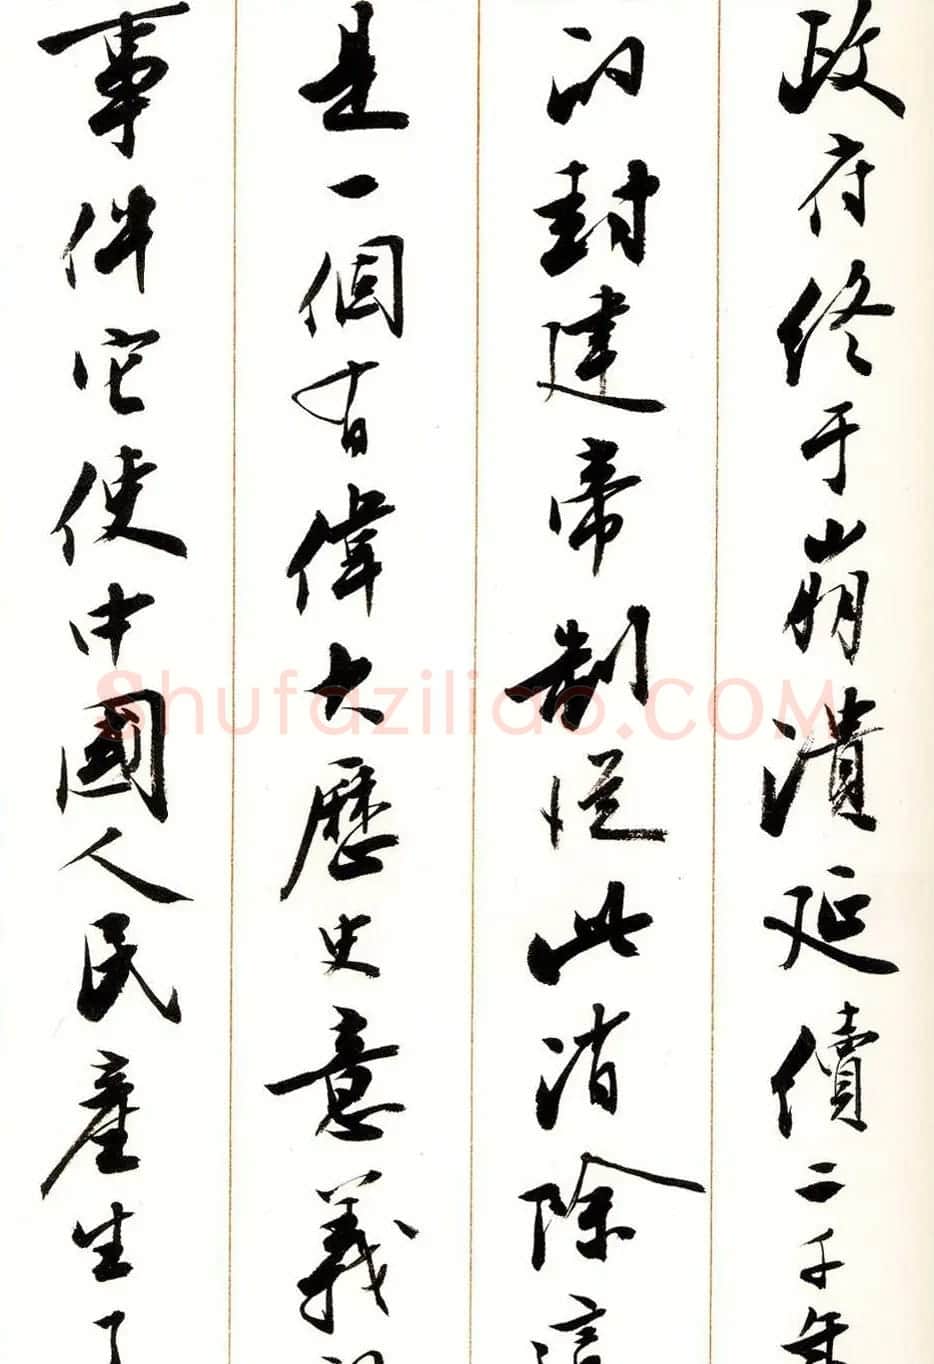 政府终于崩溃延續二千年
的封建帝制從此消除這
是一個有偉大歷史意義
事件它使中國人民產生了
Shufaziliao.COM